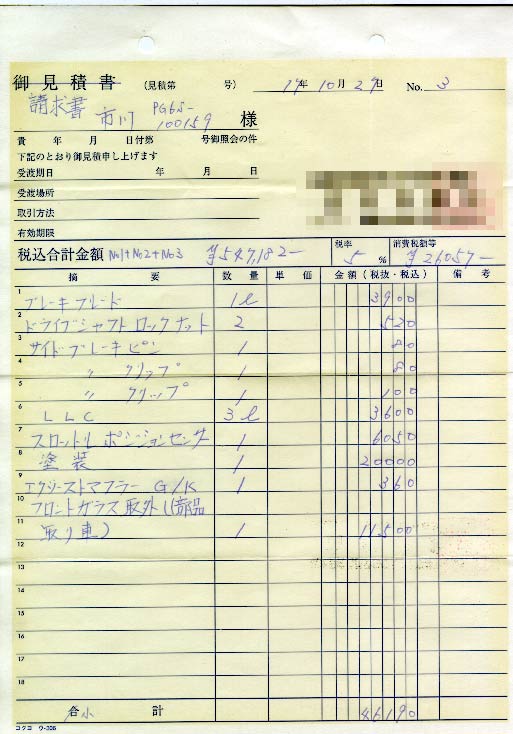 御見積書 (見積第 号) 19年 10月 29日 No. 3
請求書 市川 PG6S-
100159 様
貴 年 月 日付第 号御照会の件
下記のとおり御見積申し上げます
受渡期日 年 月 日
受渡場所
取引方法
有効期限
税込合計金額 No1+No2+No3 ¥547,182- 税率 5% 消費税額等 ¥26057-
摘 要 数 量 単 価 金 額 (税抜・税込) 備 考
1 ブレーキフルード 1l 3900
2 ドライブシャフトロックナット 2 520
3 サイドブレーキピン 1 80
4 〃 クリップ 1 80
5 〃 クリップ 1 100
6 LLC 3l 3600
7 スロットルポジションセンサー 1 6050
8 塗装 1 20000
9 エクゾーストマフラー G/K 1 360
10 フロントガラス取外(部品
11 取り車) 1 11500
12
13
14
15
16
17
18
合小 計 46190
コクヨ ウ-306